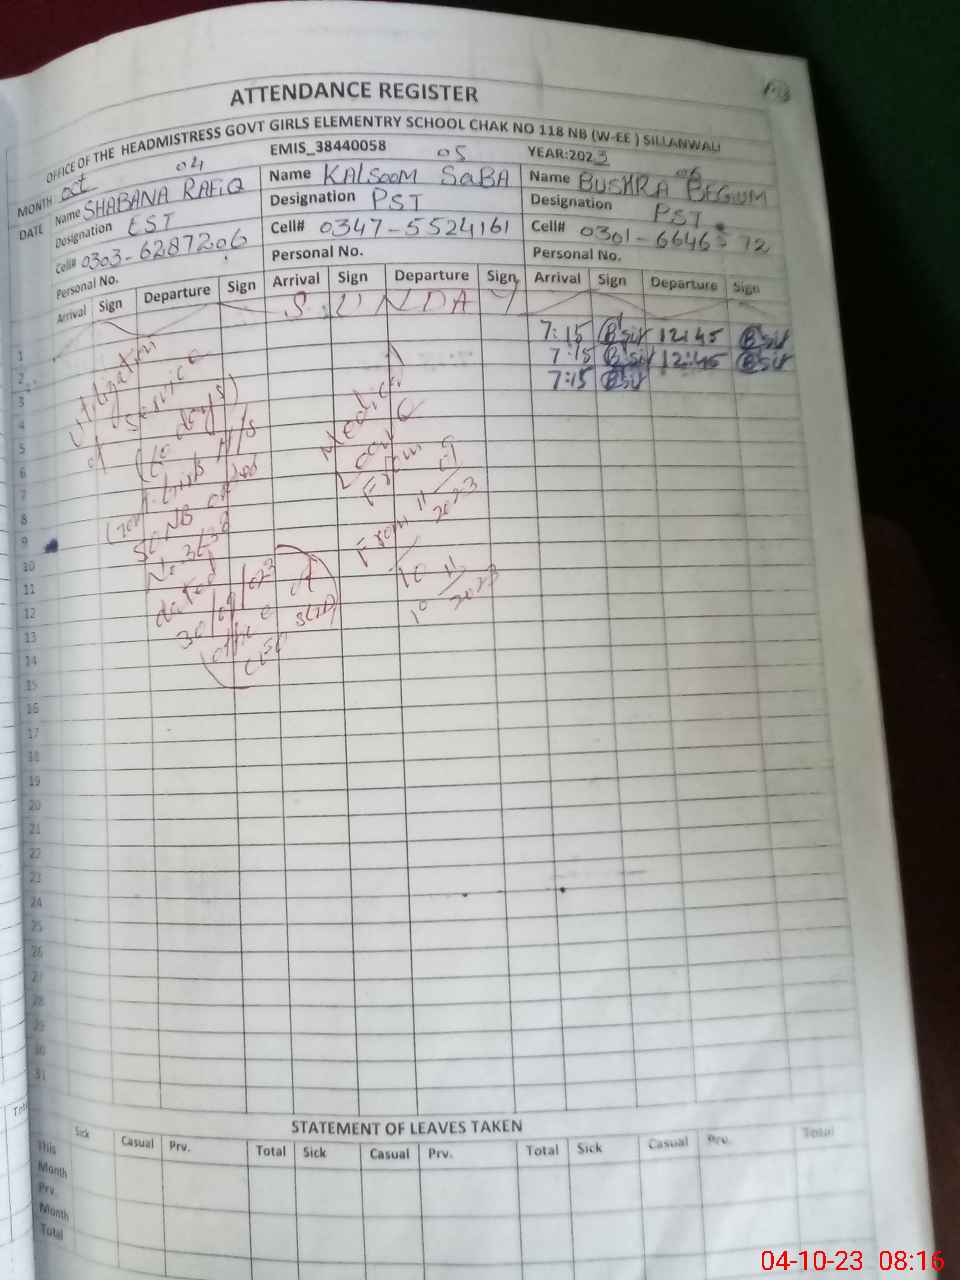 ATTENDANCE REGISTER
OFFICE OF THE HEADMISTRESS GOVT GIRLS ELEMENTRY SCHOOL CHAK NO 118 NB (W-EE ) SILLANWALI
EMIS_38440058
YEAR:2023
MONTH oct
04 05 06
DATE
Name SHABANA RAFiQ
Designation EST
Cell# 0303-6287206
Personal No.
Name KALSOOM SABA
Designation PST
Cell# 0347-5524161
Personal No.
Name BUSHRA BEGUM
Designation PST
Cell# 0301-6646 72
Personal No.
Arrival Sign Departure Sign Arrival Sign Departure Sign Arrival Sign Departure Sign
SUNDAY
1
2 7:15 12:45
3 7:15 12:45
4 7:15
5
6
7
8
9
10
11
12
13
14
15
16
17
18
19
20
21
22
23
24
25
26
27
28
29
30
31
Utilization
of Service
(60 days)
50NB
dated
30/09/023
office of
Medical
Leave
From
From 11/9/2023
To
10/11/2023
STATEMENT OF LEAVES TAKEN
Sick Casual Prv. Total Sick Casual Prv. Total Sick Casual Prv. Total
This
Month
Prv.
Month
Total
04-10-23 08:16